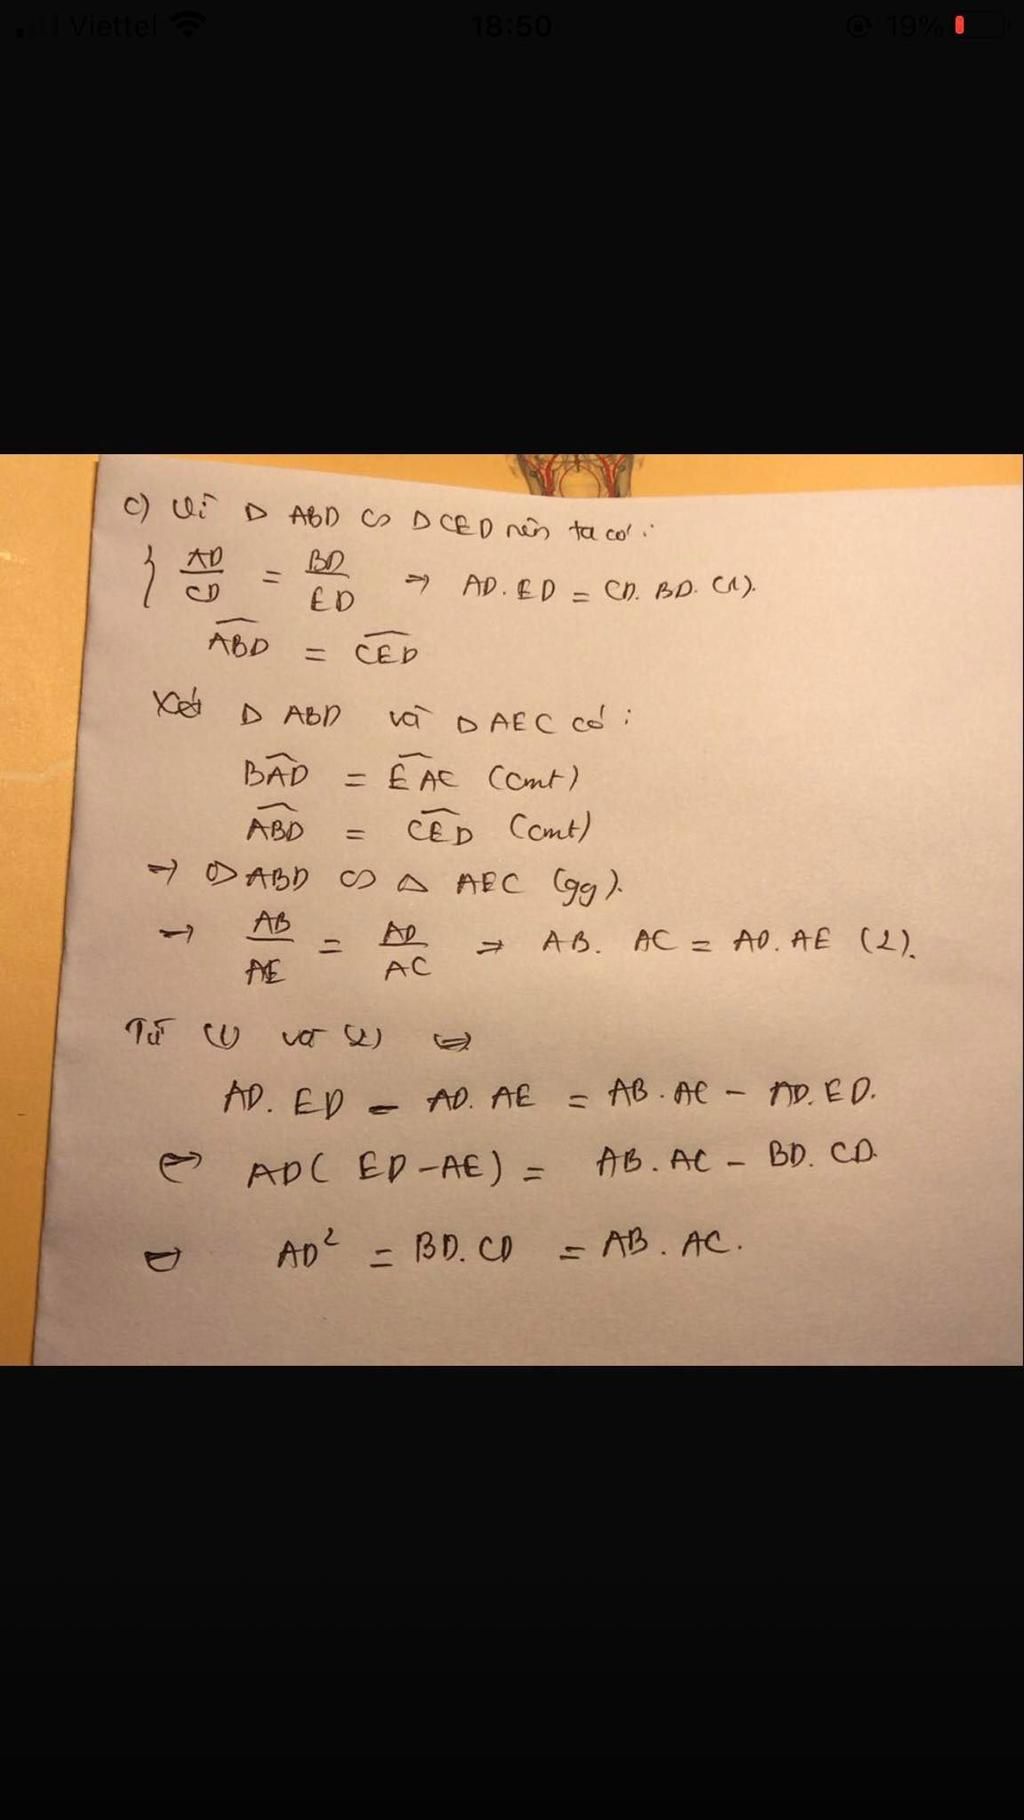 Viettel 18:50 19%
c) Vì Δ ABD ∽ Δ CED nên ta có:
{ AD/CD = BD/ED ⇒ AD.ED = CD.BD. (1).
\widehat{ABD} = \widehat{CED}
Xét Δ ABD và Δ AEC có:
\widehat{BAD} = \widehat{EAC} (cmt)
\widehat{ABD} = \widehat{CED} (cmt)
→ Δ ABD ∽ Δ AEC (gg).
→ AB/AE = AD/AC ⇒ AB. AC = AD.AE (2).
Từ (1) và (2) ⇒
AD. ED - AD. AE = AB.AC - AD.ED.
⇔ AD( ED - AE) = AB.AC - BD.CD.
⇔ AD² = BD.CD = AB.AC.